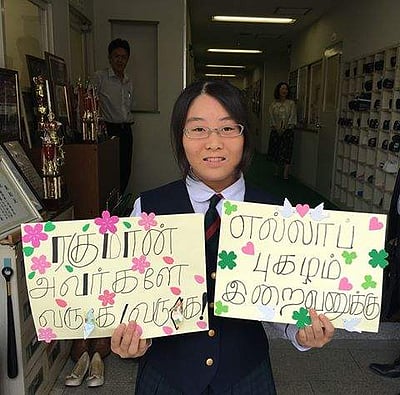 ரகுமான்
அவர்களே
வருக!வருக!
எல்லாப்
புகழும்
இறைவனுக்கு